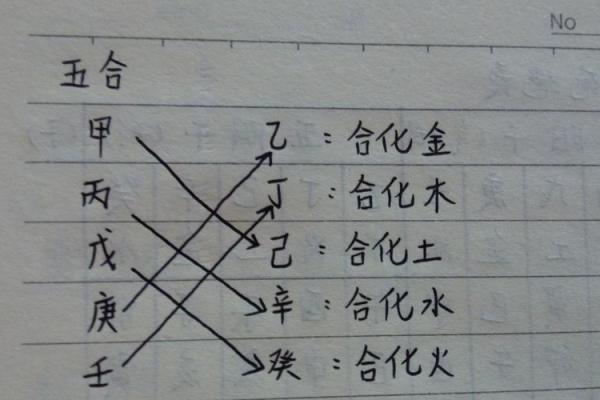 No
五合
甲 乙：合化金
丙 丁：合化木
戊 己：合化土
庚 辛：合化水
壬 癸：合化火